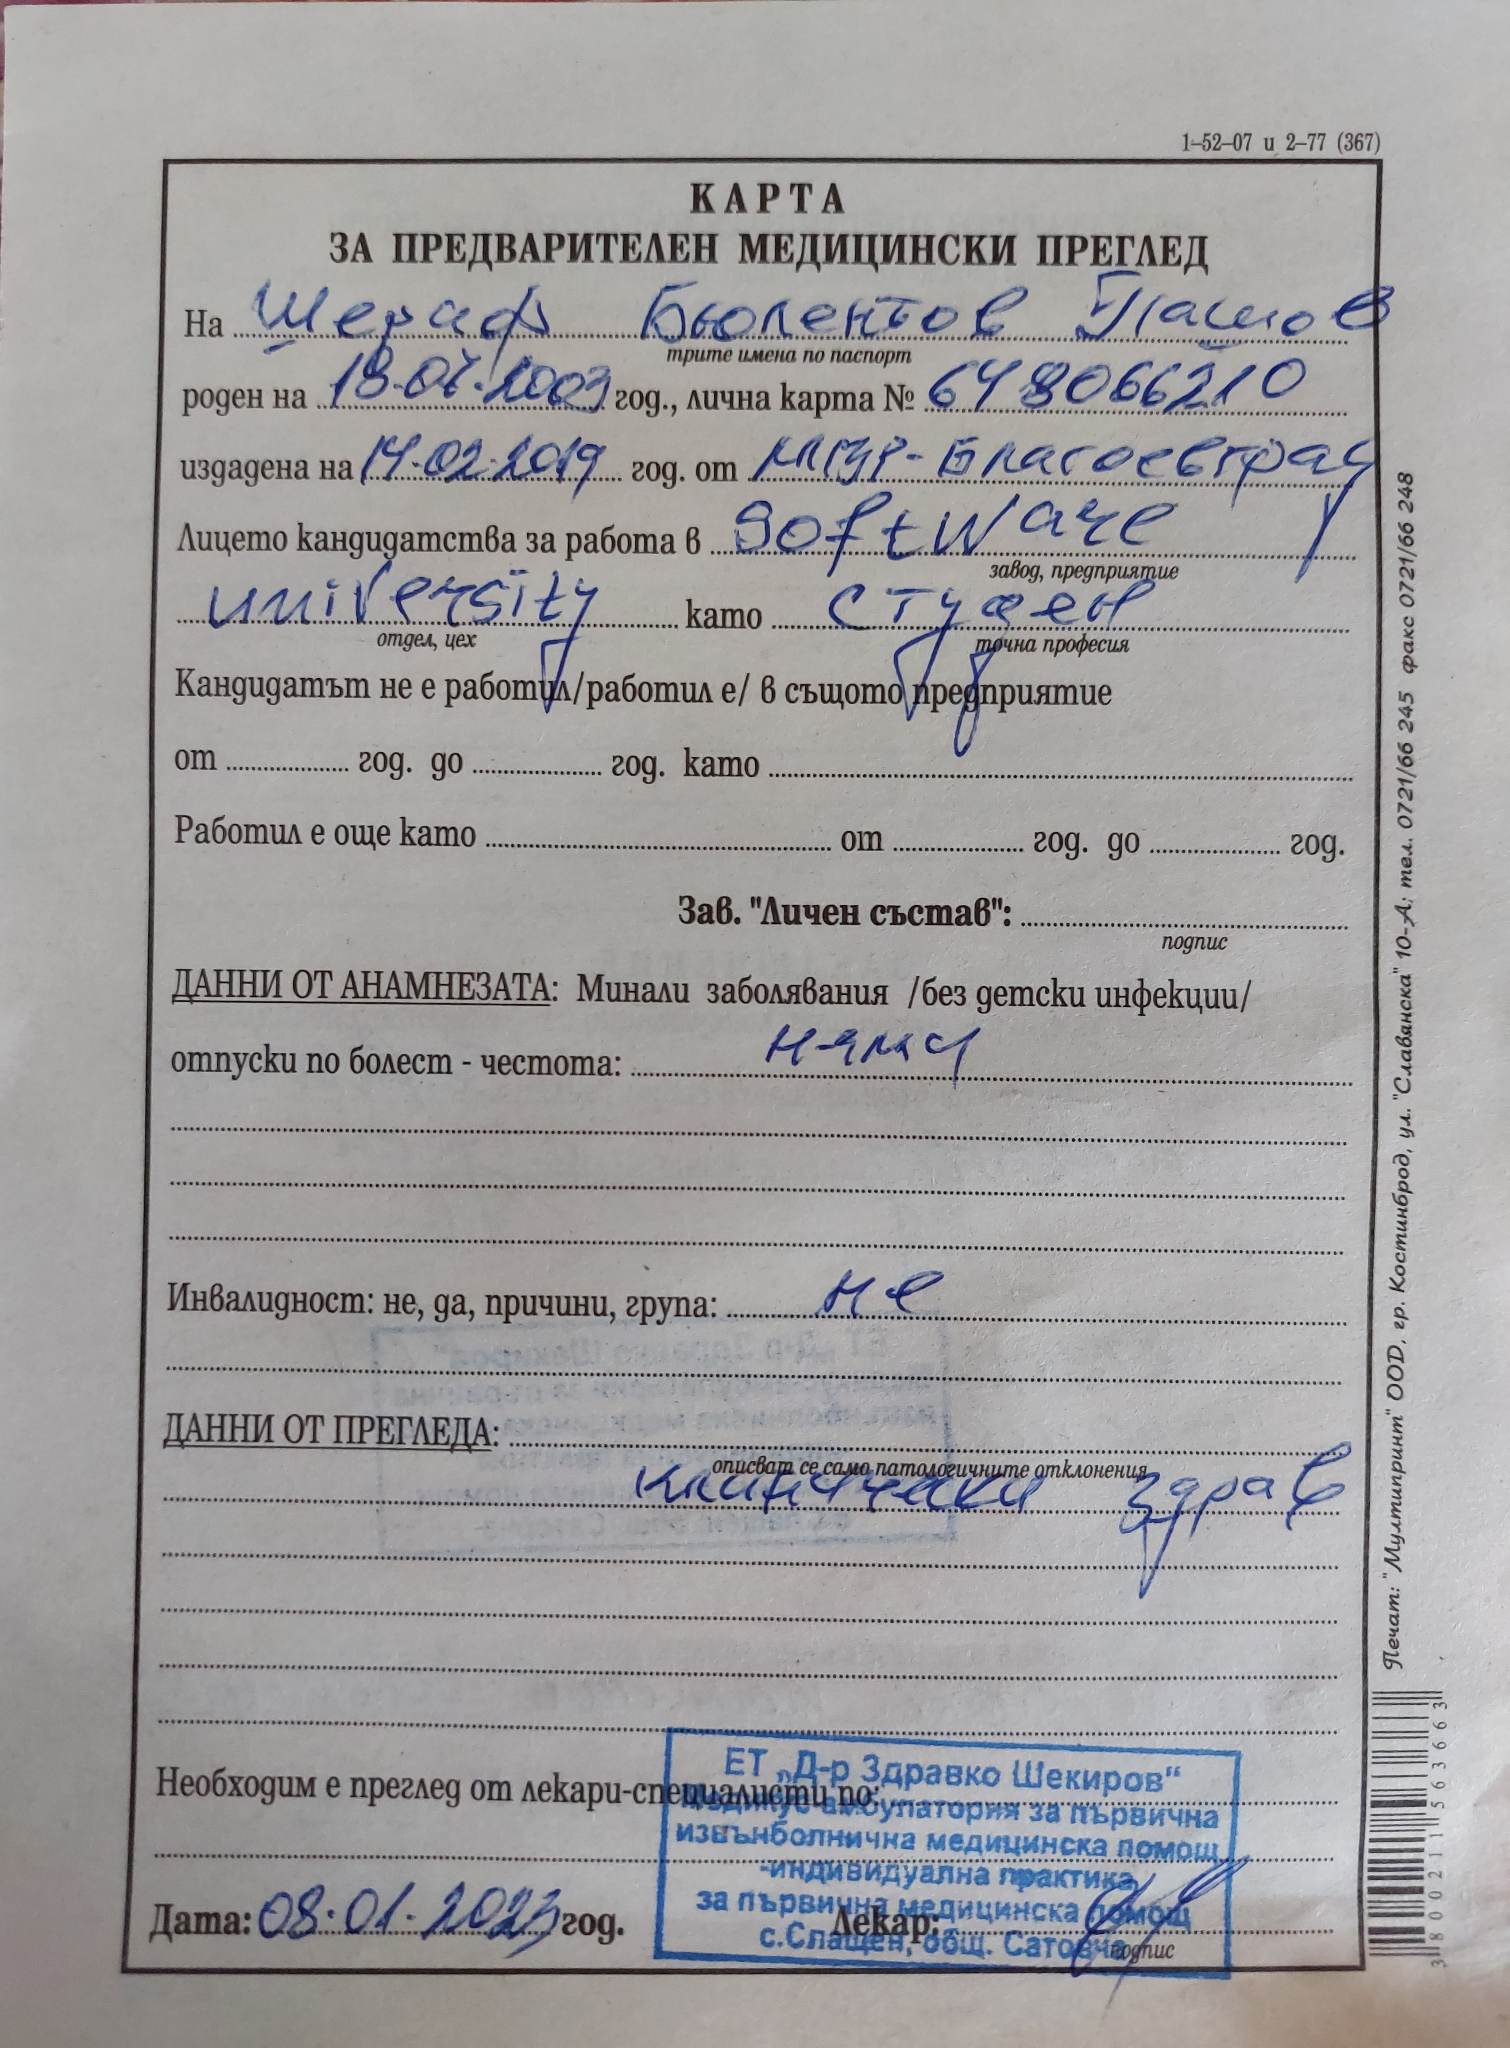 1–52–07 и 2–77 (367)
КАРТА
ЗА ПРЕДВАРИТЕЛЕН МЕДИЦИНСКИ ПРЕГЛЕД
На Шераф Бюлентов Пашов
трите имена по паспорт
роден на 18.07.2003 год., лична карта № 648066210
издадена на 14.02.2019 год. от МВР-Благоевград
Лицето кандидатства за работа в Software
завод, предприятие
university като студен
отдел, цех точна професия
Кандидатът не е работил/работил е/ в същото предприятие
от год. до год. като
Работил е още като от год. до год.
Зав. "Личен състав":
подпис
ДАННИ ОТ АНАМНЕЗАТА: Минали заболявания /без детски инфекции/
отпуски по болест - честота: няма
Инвалидност: не, да, причини, група: не
ДАННИ ОТ ПРЕГЛЕДА:
описват се само патологичните отклонения
клинически здрав
Необходим е преглед от лекари-специалисти по:
ЕТ „Д-р Здравко Шекиров“
амбулатория за първична
извънболнична медицинска помощ
-индивидуална практика
за първична медицинска помощ
с.Слащен, общ. Сатовча
Дата: 08.01.2023 год. Лекар:
подпис
Печат: "Мултипринт" ООД, гр. Костинброд, ул. "Славянска" 10-А; тел. 0721/66 245 факс 0721/66 248
3800211563663